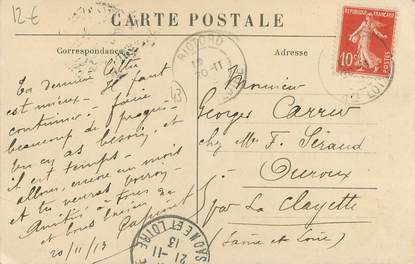 12 €
CARTE POSTALE
Correspondance
Adresse
RIOTORD
20-11
LOIRE
REPUBLIQUE FRANÇAISE
10c
POSTES
Ta dernière
est mieux. Il faut
continuer à faire
beaucoup de progrès
tu en as besoin, et
il est temps.
allons, encore un mois
et tu verras
Amitiés à tous
et bons baisers de
20/11/13
Monsieur
Georges Carrew
chez Mr F. Séraud
Ouroux
par La Clayette
(Saône et Loire)
SAONE ET LOIRE
21-11
13